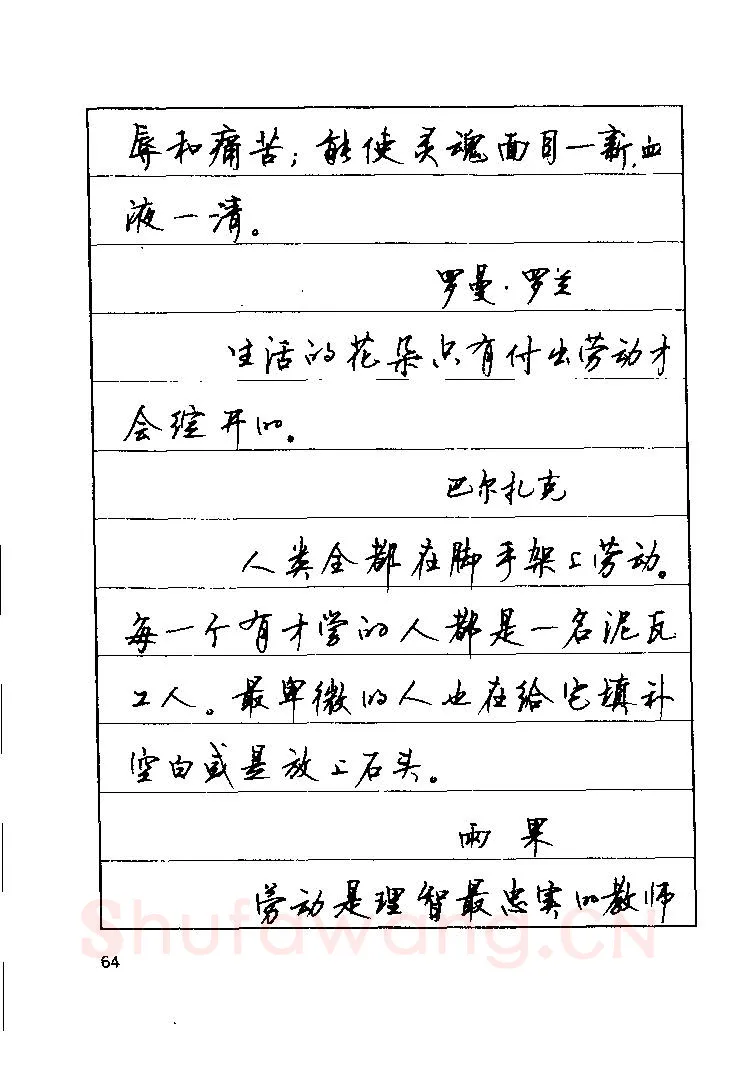 辱和痛苦；能使灵魂面目一新，血
液一清。
罗曼·罗兰
生活的花朵只有付出劳动才
会绽开的。
巴尔扎克
人类全都在脚手架上劳动。
每一个有才学的人都是一名泥瓦
工人。最卑微的人也在给它填补
空白或是放上石头。
雨果
劳动是理智最忠实的教师
Shufawang.CN
64